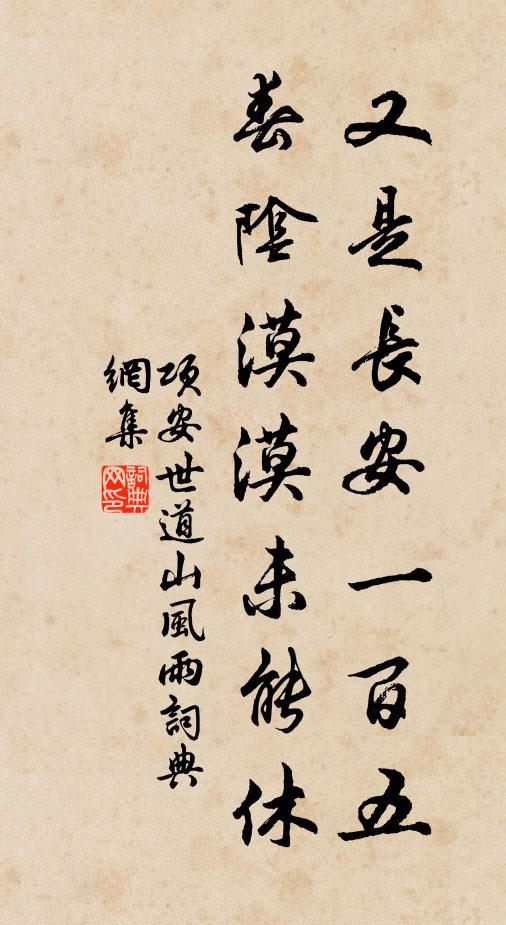 又是長安一百五
春陰漠漠未能休
項安世道山風雨詞典
網集
詞典
网印